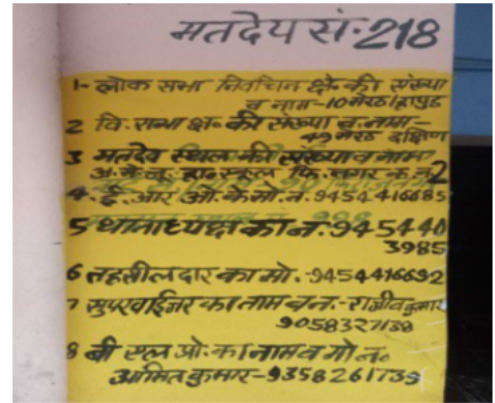 मतदेय सं.218
1- लोक सभा निर्वाचन क्षे. की संख्या
व नाम-10 मेरठ/हापुड
2 वि. सभा क्ष. की संख्या व. नामा-
49 मेरठ दक्षिण
3 मतदेय स्थल की संख्या व नामा
अ. के. जू. हा. स्कूल फि. नगर क. न. 2
4. ई. आर. ओ. के मो. न. 9454416685
5 थानाध्यक्ष का न. 945440
3985
6 तहसीलदार का मो. -9454416692
7 सुपरवाईजर का नाम व न. - राजीव कुमार
9058327138
8 बी एल ओ. का नाम व मो न०
अमित कुमार-9358261739